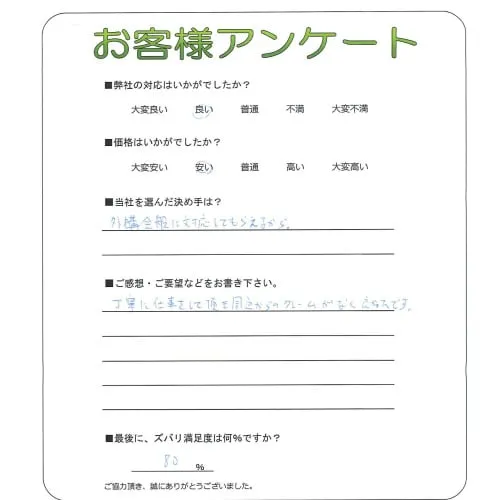 お客様アンケート
■弊社の対応はいかがでしたか？
大変良い 良い 普通 不満 大変不満
■価格はいかがでしたか？
大変安い 安い 普通 高い 大変高い
■当社を選んだ決め手は？
外構全般に対応してもらえるから。
■ご感想・ご要望などをお書き下さい。
丁寧に仕事をして頂き周辺からのクレームがなく
■最後に、ズバリ満足度は何%ですか？
80 %
ご協力頂き、誠にありがとうございました。